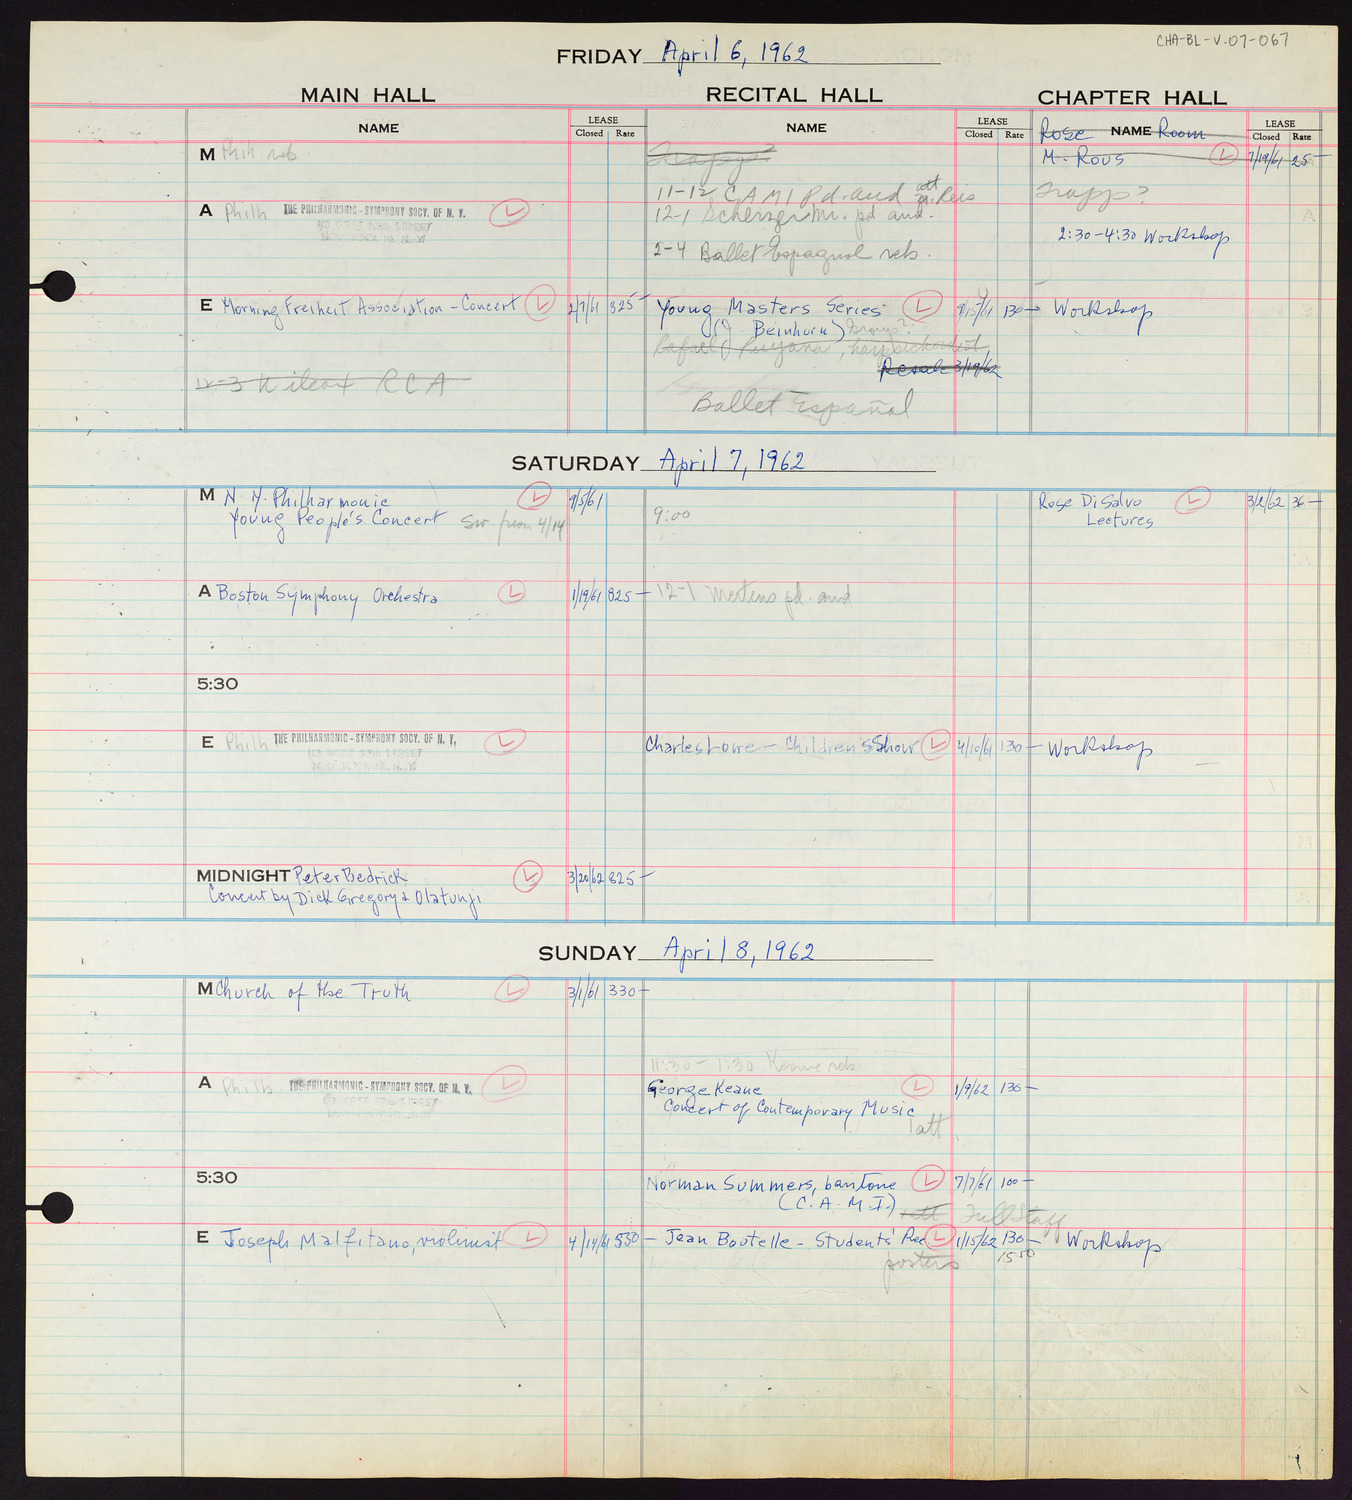 CHA-BL-V.07-067
FRIDAY April 6, 1962
MAIN HALL
RECITAL HALL
CHAPTER HALL
NAME
LEASE
Closed Rate
NAME
LEASE
Closed Rate
Rose NAME Room
LEASE
Closed Rate
M Phil. reh
M. Rous L 7/19/61 25-
11-12 CAMI Pd. aud att
Trapp?
A Philh THE PHILHARMONIC-SYMPHONY SOCY. OF N. Y. L
12-1 Scherzer Mr. pd aud.
2:30-4:30 Workshop
2-4 Ballet Espagnol reh.
E Morning Freiheit Association - Concert L 2/7/61 825-
Young Masters Series L 9/15/61 130-
Workshop
(J. Beinhorn)
Rafael Puyana, harpsichordist
Resale 3/19/62
12-3 Wilcox RCA
Ballet Español
SATURDAY April 7, 1962
M N.Y. Philharmonic L 9/5/61
Young People's Concert Sw from 4/14
9:00
Rose DiSalvo L 3/2/62 36-
Lectures
A Boston Symphony Orchestra L 1/19/61 825-
12-1 Mertens pd. aud
5:30
E Philh THE PHILHARMONIC-SYMPHONY SOCY. OF N. Y. L
Charles Lowe - Children's Show L 4/10/61 130-
Workshop
MIDNIGHT Peter Bedrick L 3/20/62 825-
Concert by Dick Gregory & Olatunji
SUNDAY April 8, 1962
M Church of the Truth L 3/1/61 330-
11:30 - 1:30 Keane reh
A Philh THE PHILHARMONIC-SYMPHONY SOCY. OF N. Y. L
George Keane L 1/9/62 130-
Concert of Contemporary Music
1 att
5:30
Norman Summers, baritone L 7/7/61 100-
(C.A.M.I.) att Full Staff
E Joseph Malfitano, violinist L 4/14/61 550-
Jean Boutelle - Students' Rec. L 1/15/62 130-
Workshop
posters 15.50